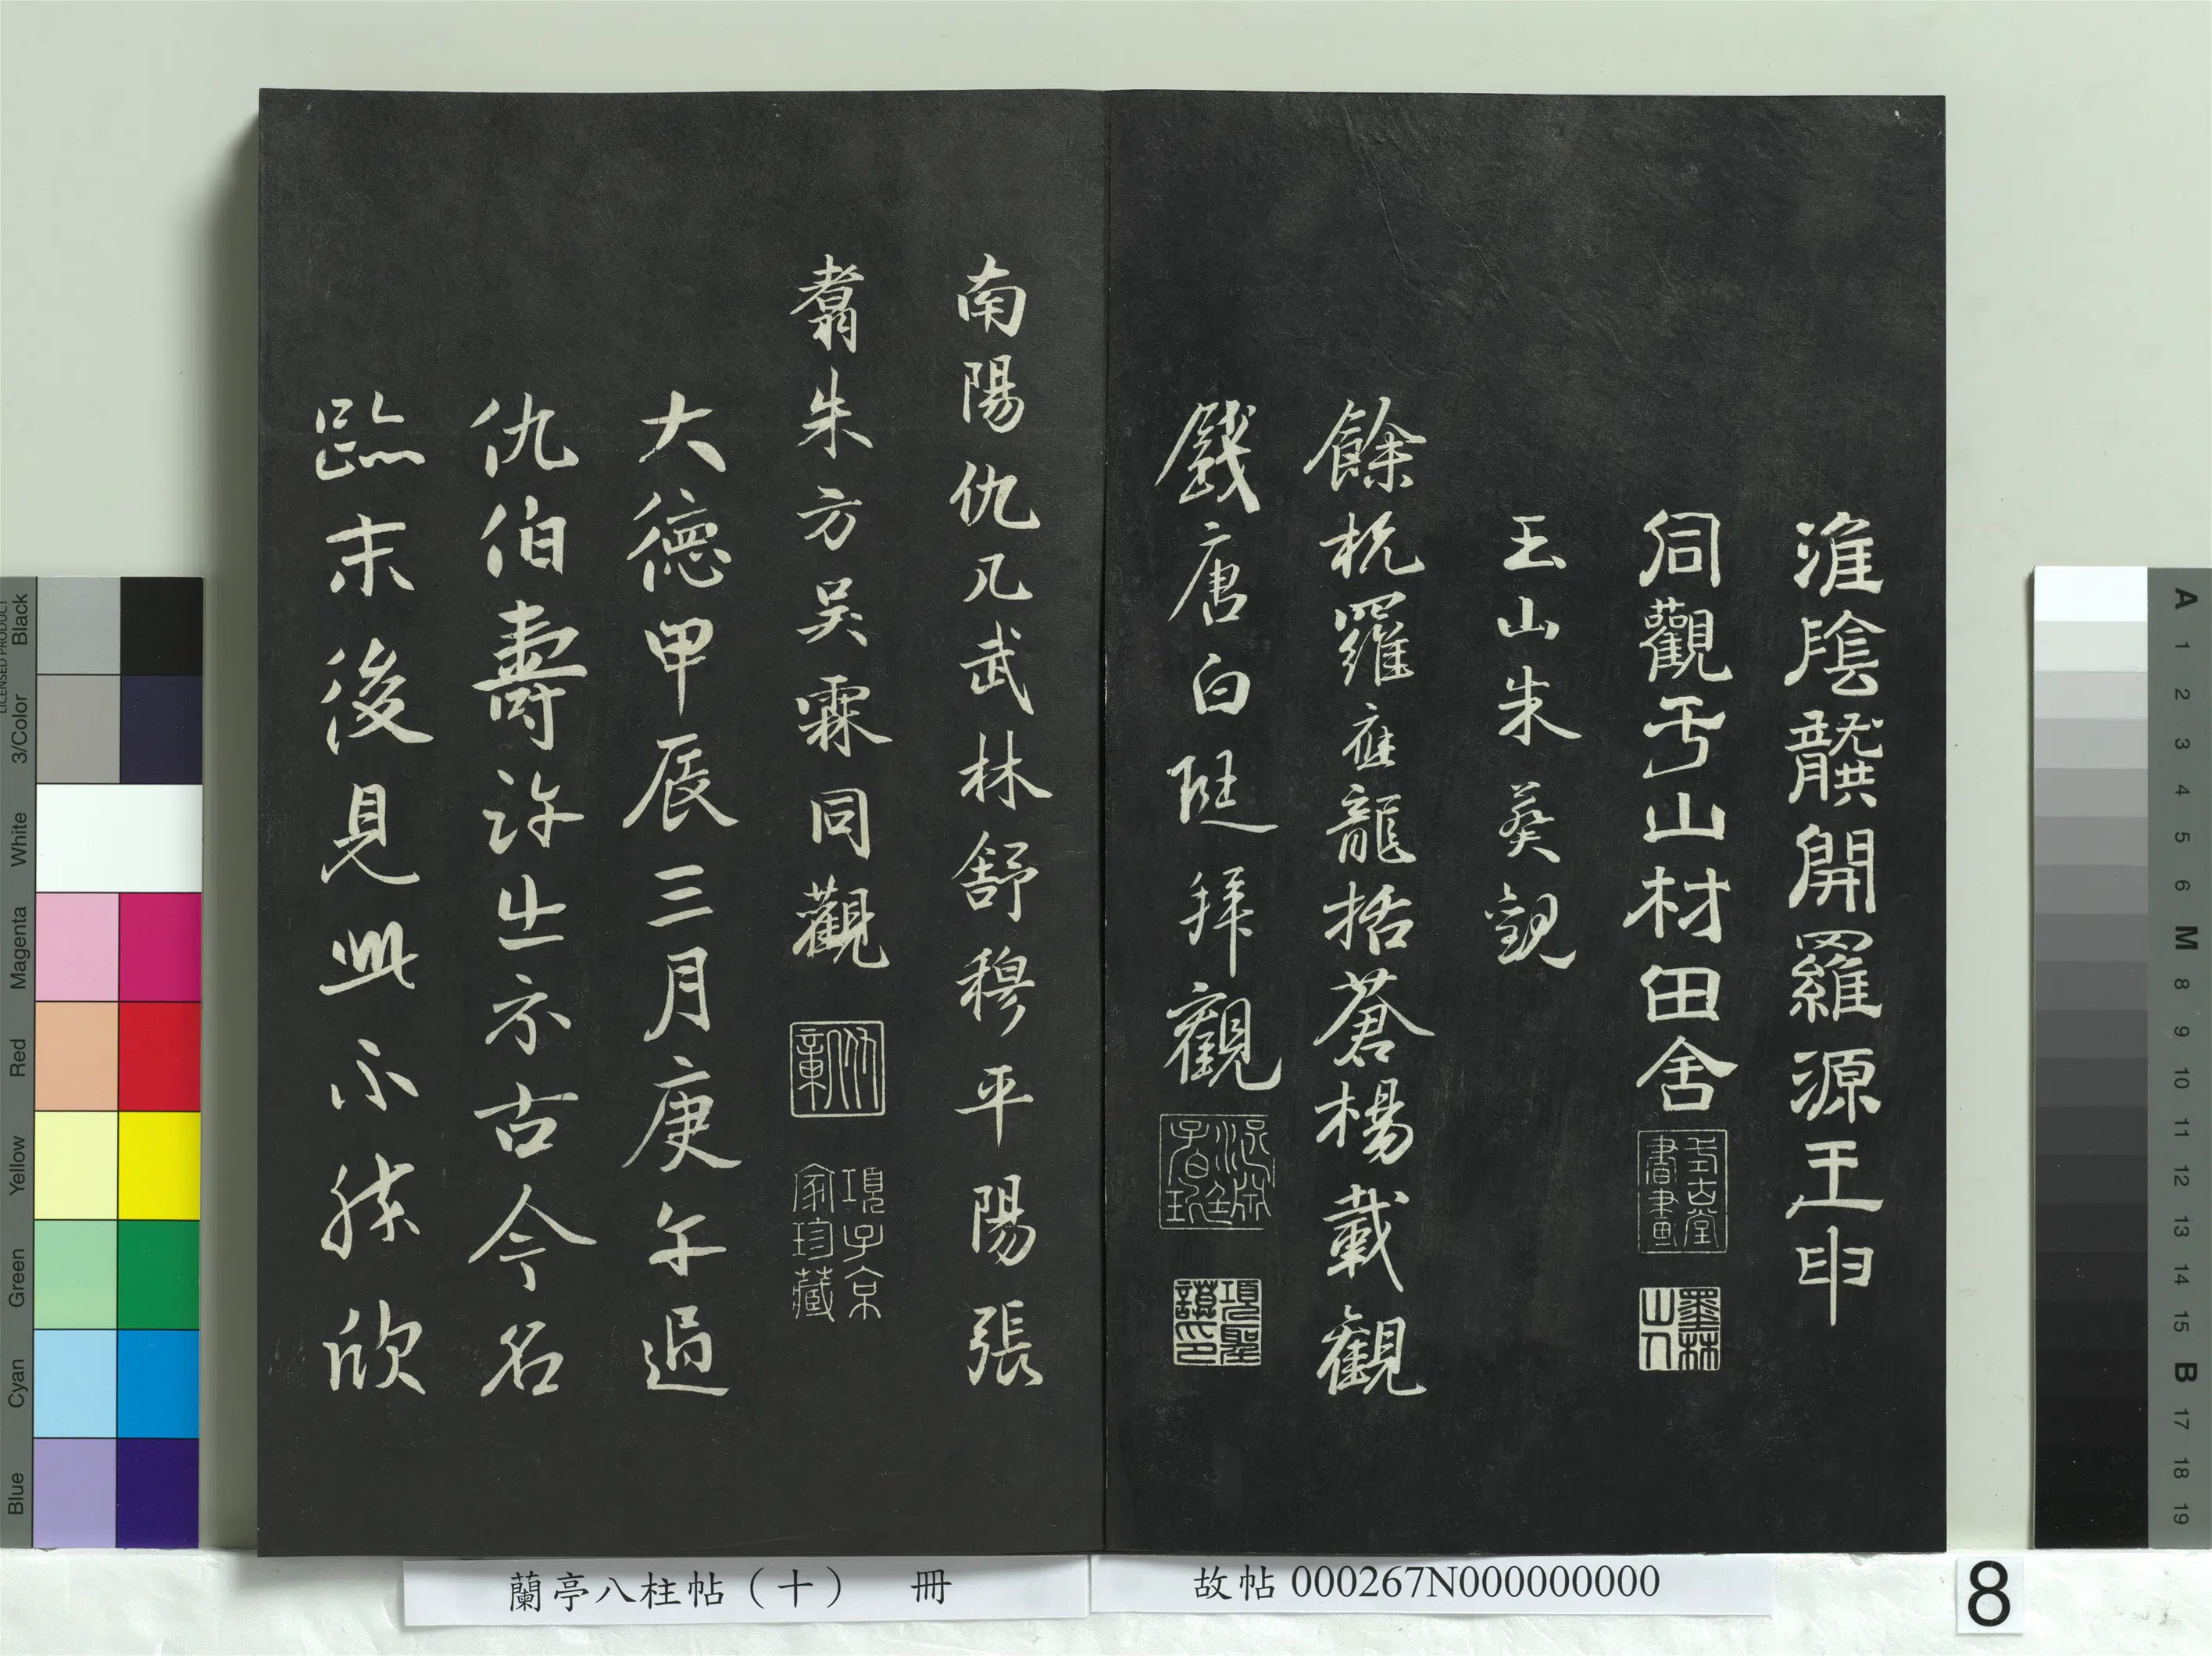 淮陰龔開羅源王申
同觀于山村田舍
式古堂書畫
墨林山人
玉山朱葵觀
餘杭羅應龍括蒼楊載觀
錢唐白珽拜觀
項聖謨印
南陽仇几武林舒穆平陽張
翥朱方吳霖同觀
項子京家珍藏
大德甲辰三月庚午過
仇伯壽許出示古今名
跡末後見此不勝欣
蘭亭八柱帖（十） 冊
故帖 000267N000000000
8
LICENSED PRODUCT
Black
3/Color
White
Magenta
Red
Yellow
Green
Cyan
Blue
A
1
2
3
4
5
6
M
8
9
10
11
12
13
14
15
B
17
18
19